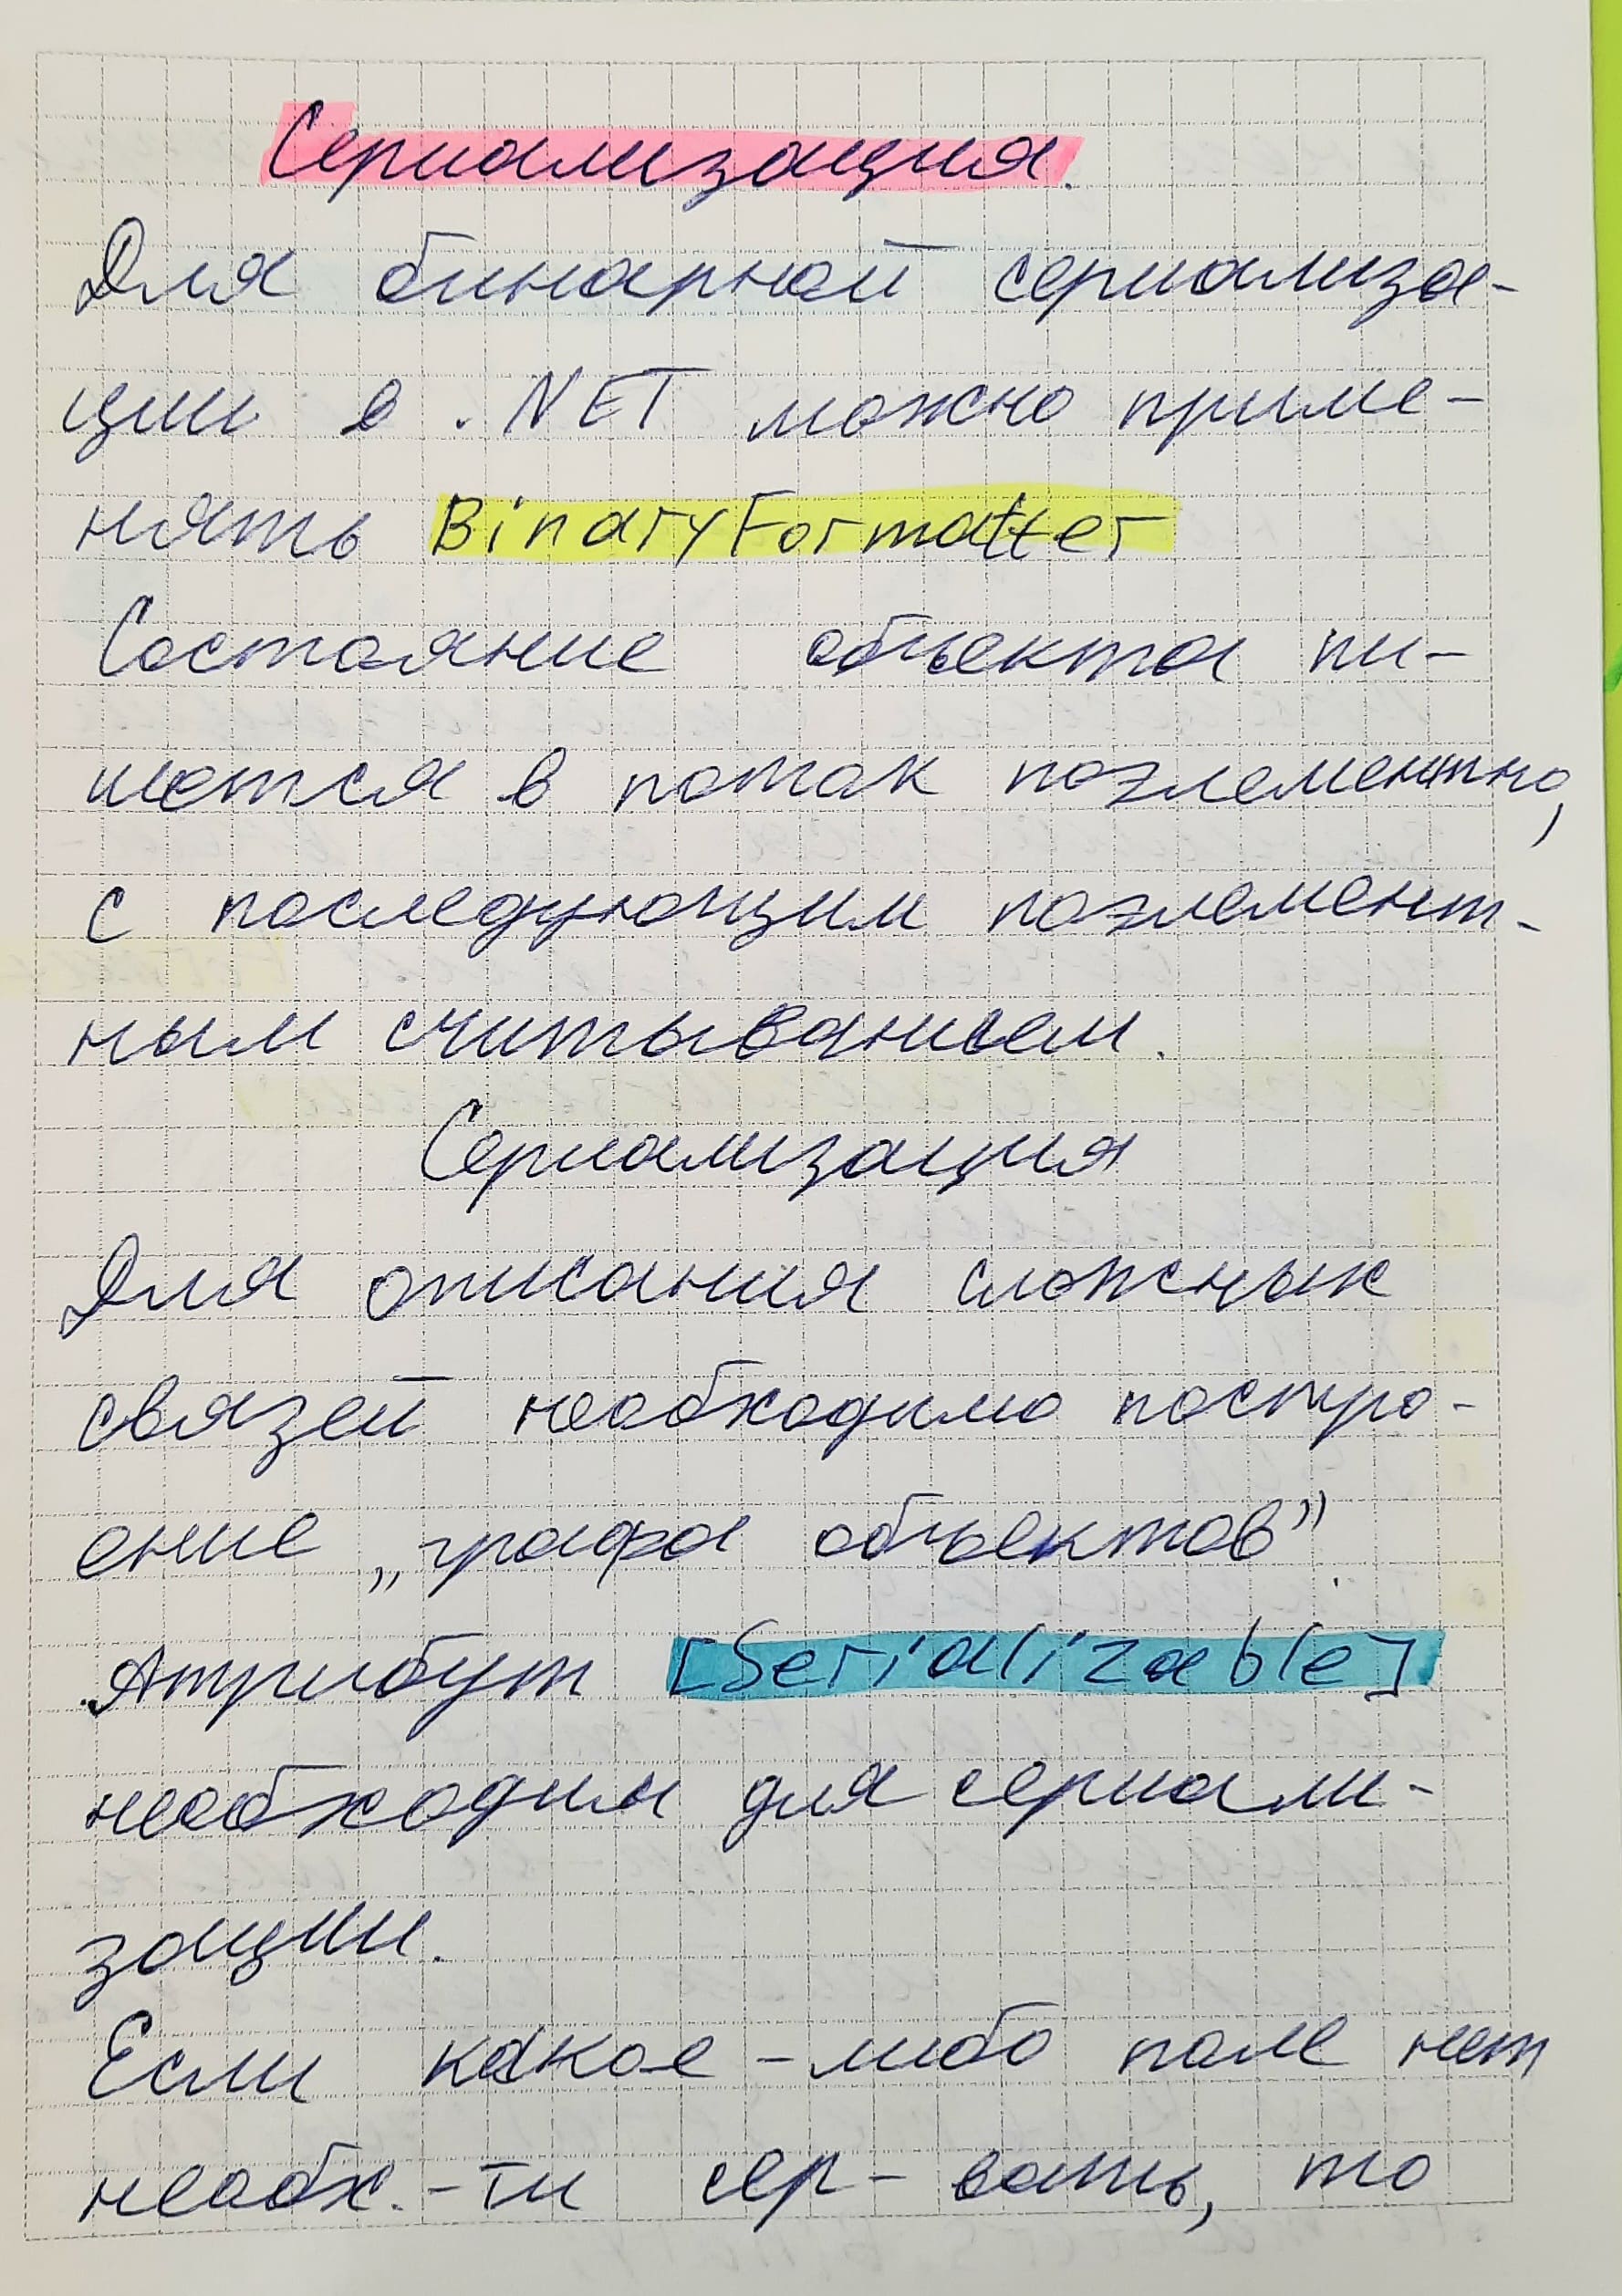 Сериализация.
Для бинарной сериализа-
ции в .NET можно приме-
нять BinaryFormatter
Состояние объекта пи-
шется в поток поэлементно,
с последующим поэлемент-
ным считыванием.
Сериализация
Для описания сложных
связей необходимо постро-
ение „графа объектов”.
Атрибут [Serializable]
необходим для сериали-
зации.
Если какое-либо поле нет
необх.-ти сер-вать, то